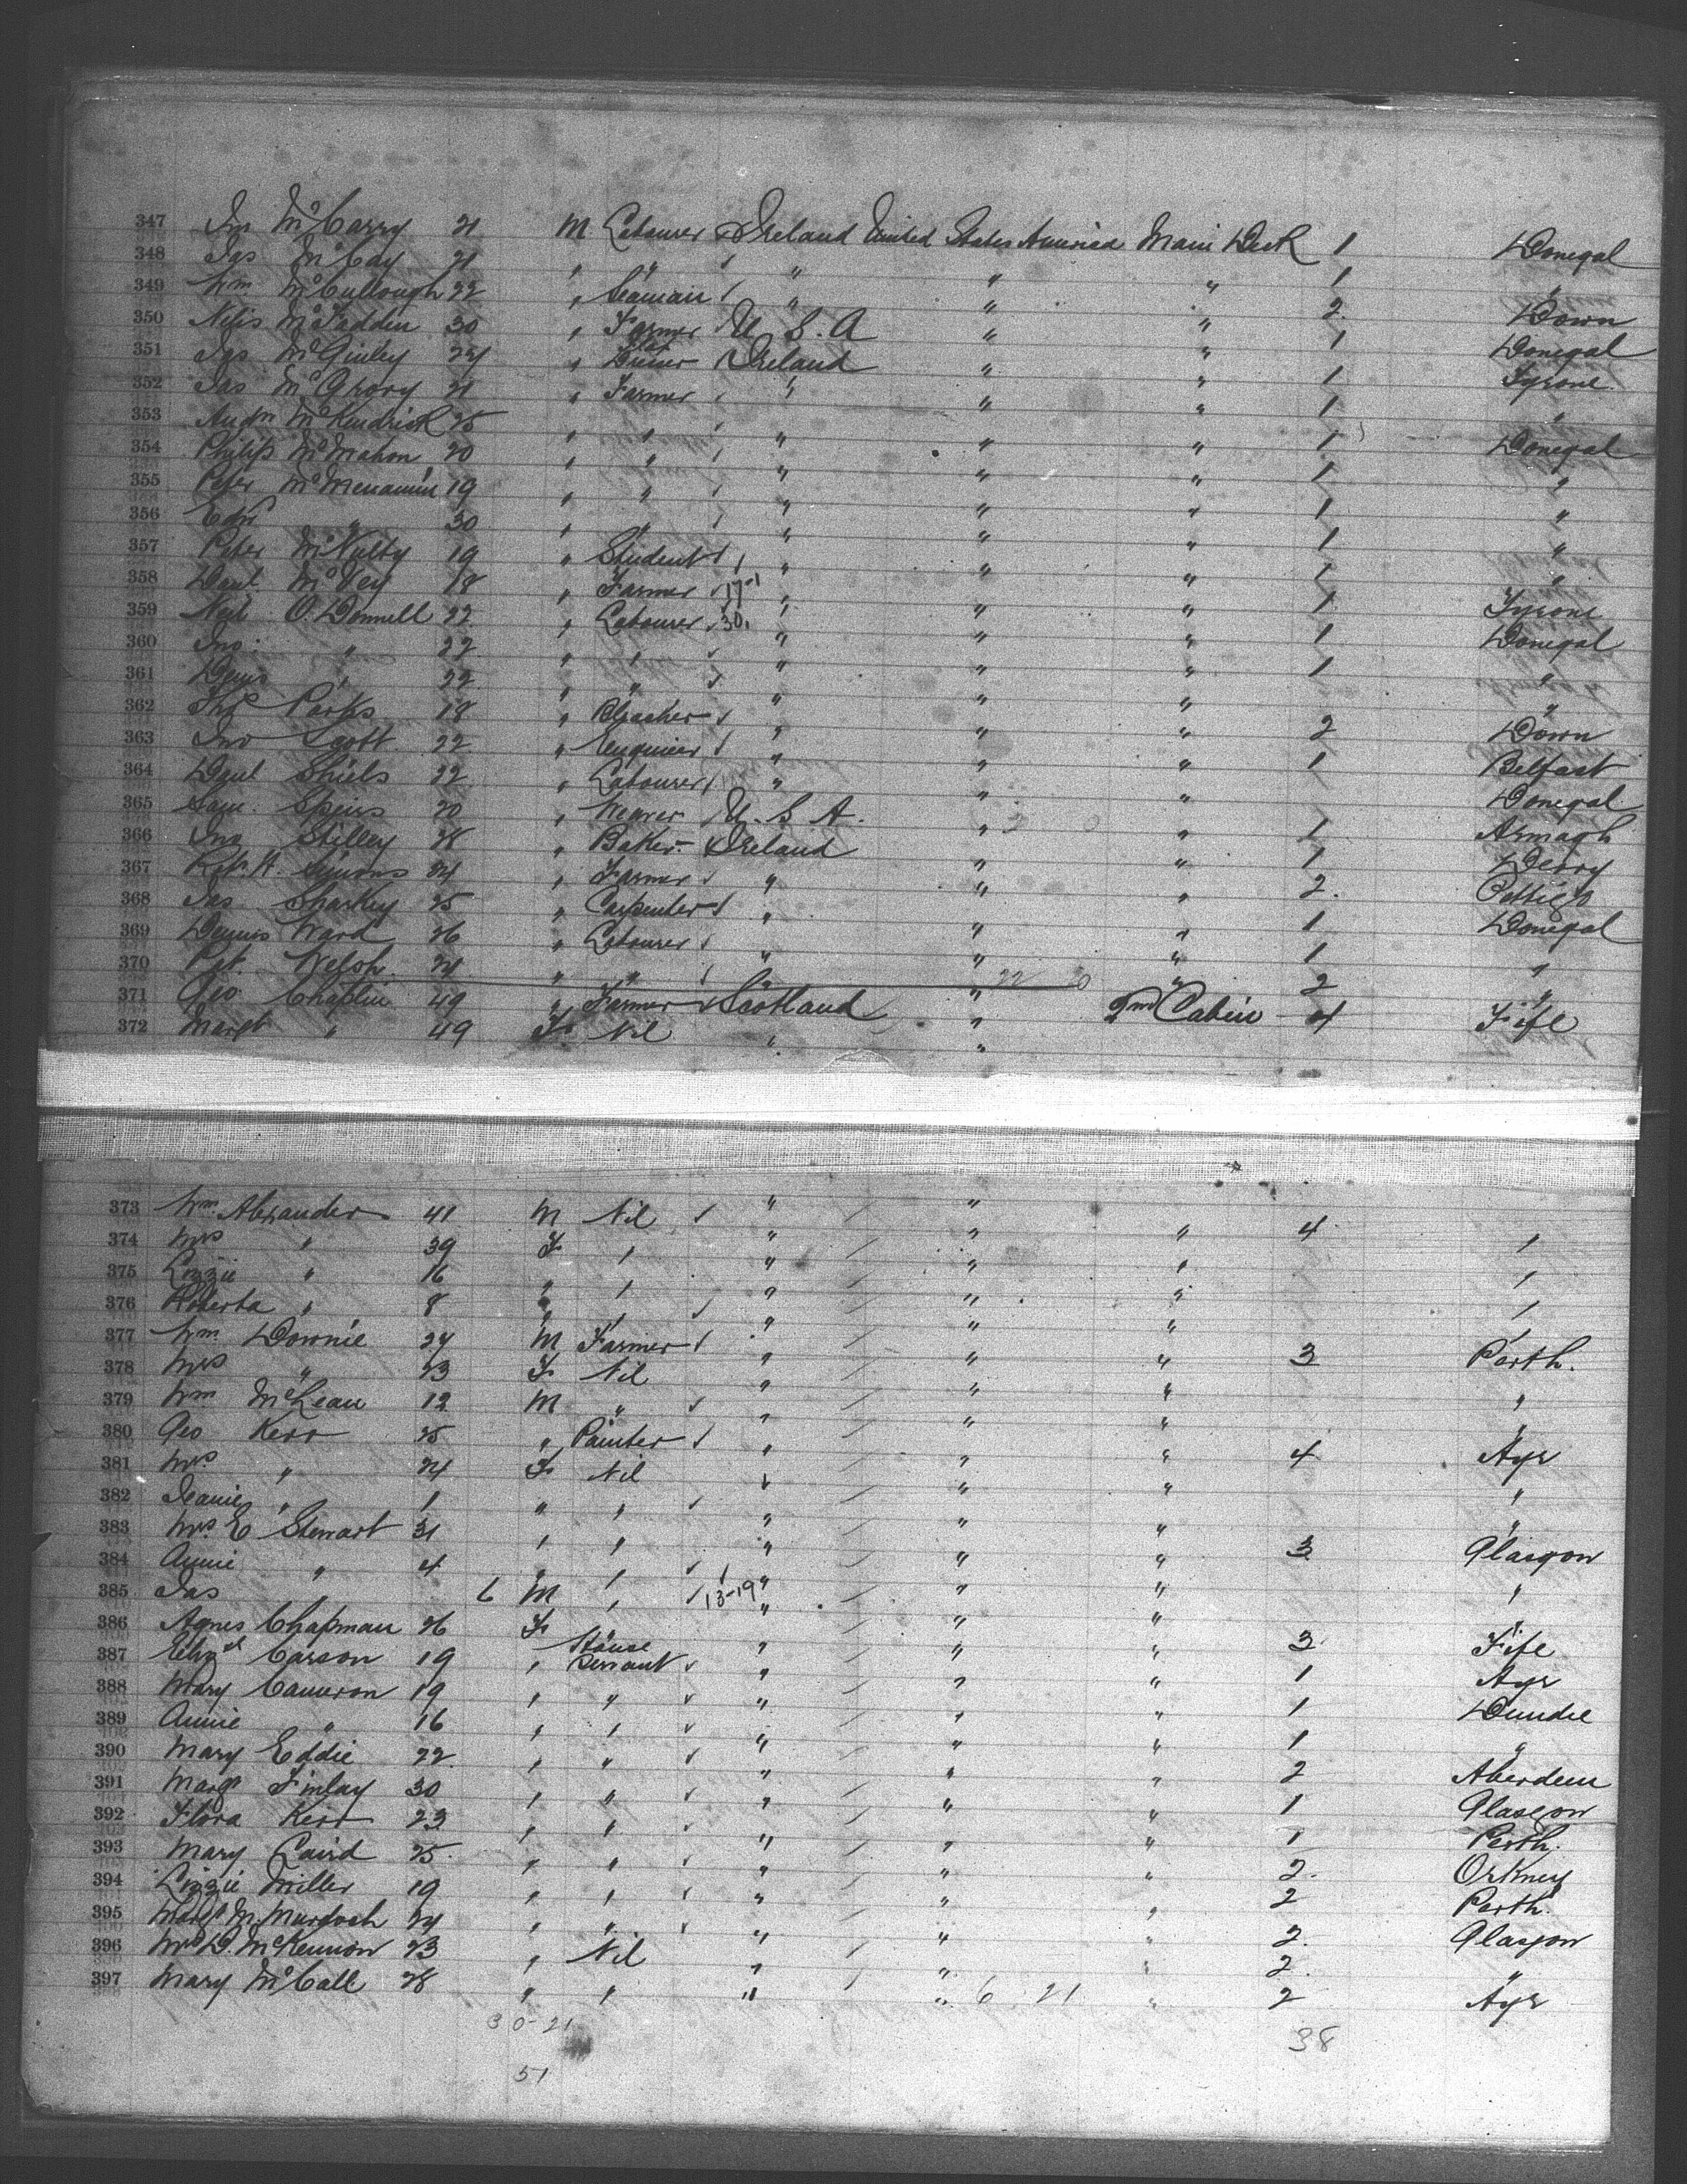 347 Jno McCarry 21 M Labourer Ireland United States America Main Deck 1 Donegal
348 Jas McCay 21 " " " " " 1 "
349 Wm McCullough 22 " Seaman " " " 2 Down
350 Nelis McFadden 30 " Farmer U. S. A " " 1 Donegal
351 Jas McGinley 24 " Ireland " " 1 Tyrone
352 Jas McGrory 21 " Farmer " " " 1 "
353 Andw McKendrick 25 " " " " " 1 Donegal
354 Philip McMahon 20 " " " " " 1 "
355 Peter McMenamin 19 " " " " " 1 "
356 Edwd " 30 " " " " " 1 "
357 Peter McNulty 19 " Student " " " 1 "
358 Danl McVey 18 " Farmer 17-1 " " " 1 Tyrone
359 Neil O. Donnell 22 " Labourer 30 " " " 1 Donegal
360 Jno. " 22 " " " " " 1 "
361 Denis " 22 " " " " " "
362 Thos Parks 18 " Bleacher " " " 2 Down
363 Jno Scott 22 " Engineer " " " 1 Belfast
364 Danl Shiels 22 " Labourer " " " Donegal
365 Saml. Speirs 20 " Weaver U. S. A. " " 1 Armagh
366 Jno Stilley 28 " Baker Ireland " " 1 Derry
367 Robt. H. Simons 24 " Farmer " " " 2 Pettigo
368 Jas Sharkey 25 " Carpenter " " " 1 Donegal
369 Dennis Ward 26 " Labourer " " " 1 "
370 Pat. Welsh 24 " " " " 22 0 " 2 "
371 Geo Chaplin 49 " Farmer Scotland " 2nd Cabin 4 Fife
372 Margt " 49 F Nil " "
373 Wm. Alexander 41 M Nil " " " 4 "
374 Mrs " 39 F " " " " "
375 Lizzie " 16 " " " " " "
376 Roberta " 8 " " " " " "
377 Wm Downie 27 M Farmer " " " 3 Perth.
378 Mrs " 23 F Nil " " " "
379 Wm McLean 12 M " " " " "
380 Geo Kerr 25 " Painter " " " 4 Ayr
381 Mrs " 24 F Nil " " " "
382 Jeanie " 1 " " " " " "
383 Mrs. E Stewart 31 " " " " " 3 Glasgow
384 Annie " 4 " " " " " "
385 Jas 6 M " 13-19 " " " "
386 Agnes Chapman 26 F " " " 3 Fife
387 Elizth Carson 19 " House Servant " " " 1 Ayr
388 Mary Cameron 19 " " " " " 1 Dundee
389 Annie " 16 " " " " " 1 "
390 Mary Eddie 22 " " " " " 2 Aberdeen
391 Margt Finlay 30 " " " " " 1 Glasgow
392 Flora Kerr 23 " " " " " 1 Perth.
393 Mary Laird 25 " " " " " 2. Orkney
394 Lizzie Miller 19 " " " " " 2 Perth.
395 Margt M. Murdoch 24 " " " " " 2. Glasgow
396 Mrs D. McKennon 23 " Nil " " " 2. "
397 Mary McCall 28 " " " " 6 21 " 2 Ayr
30-21 38
51